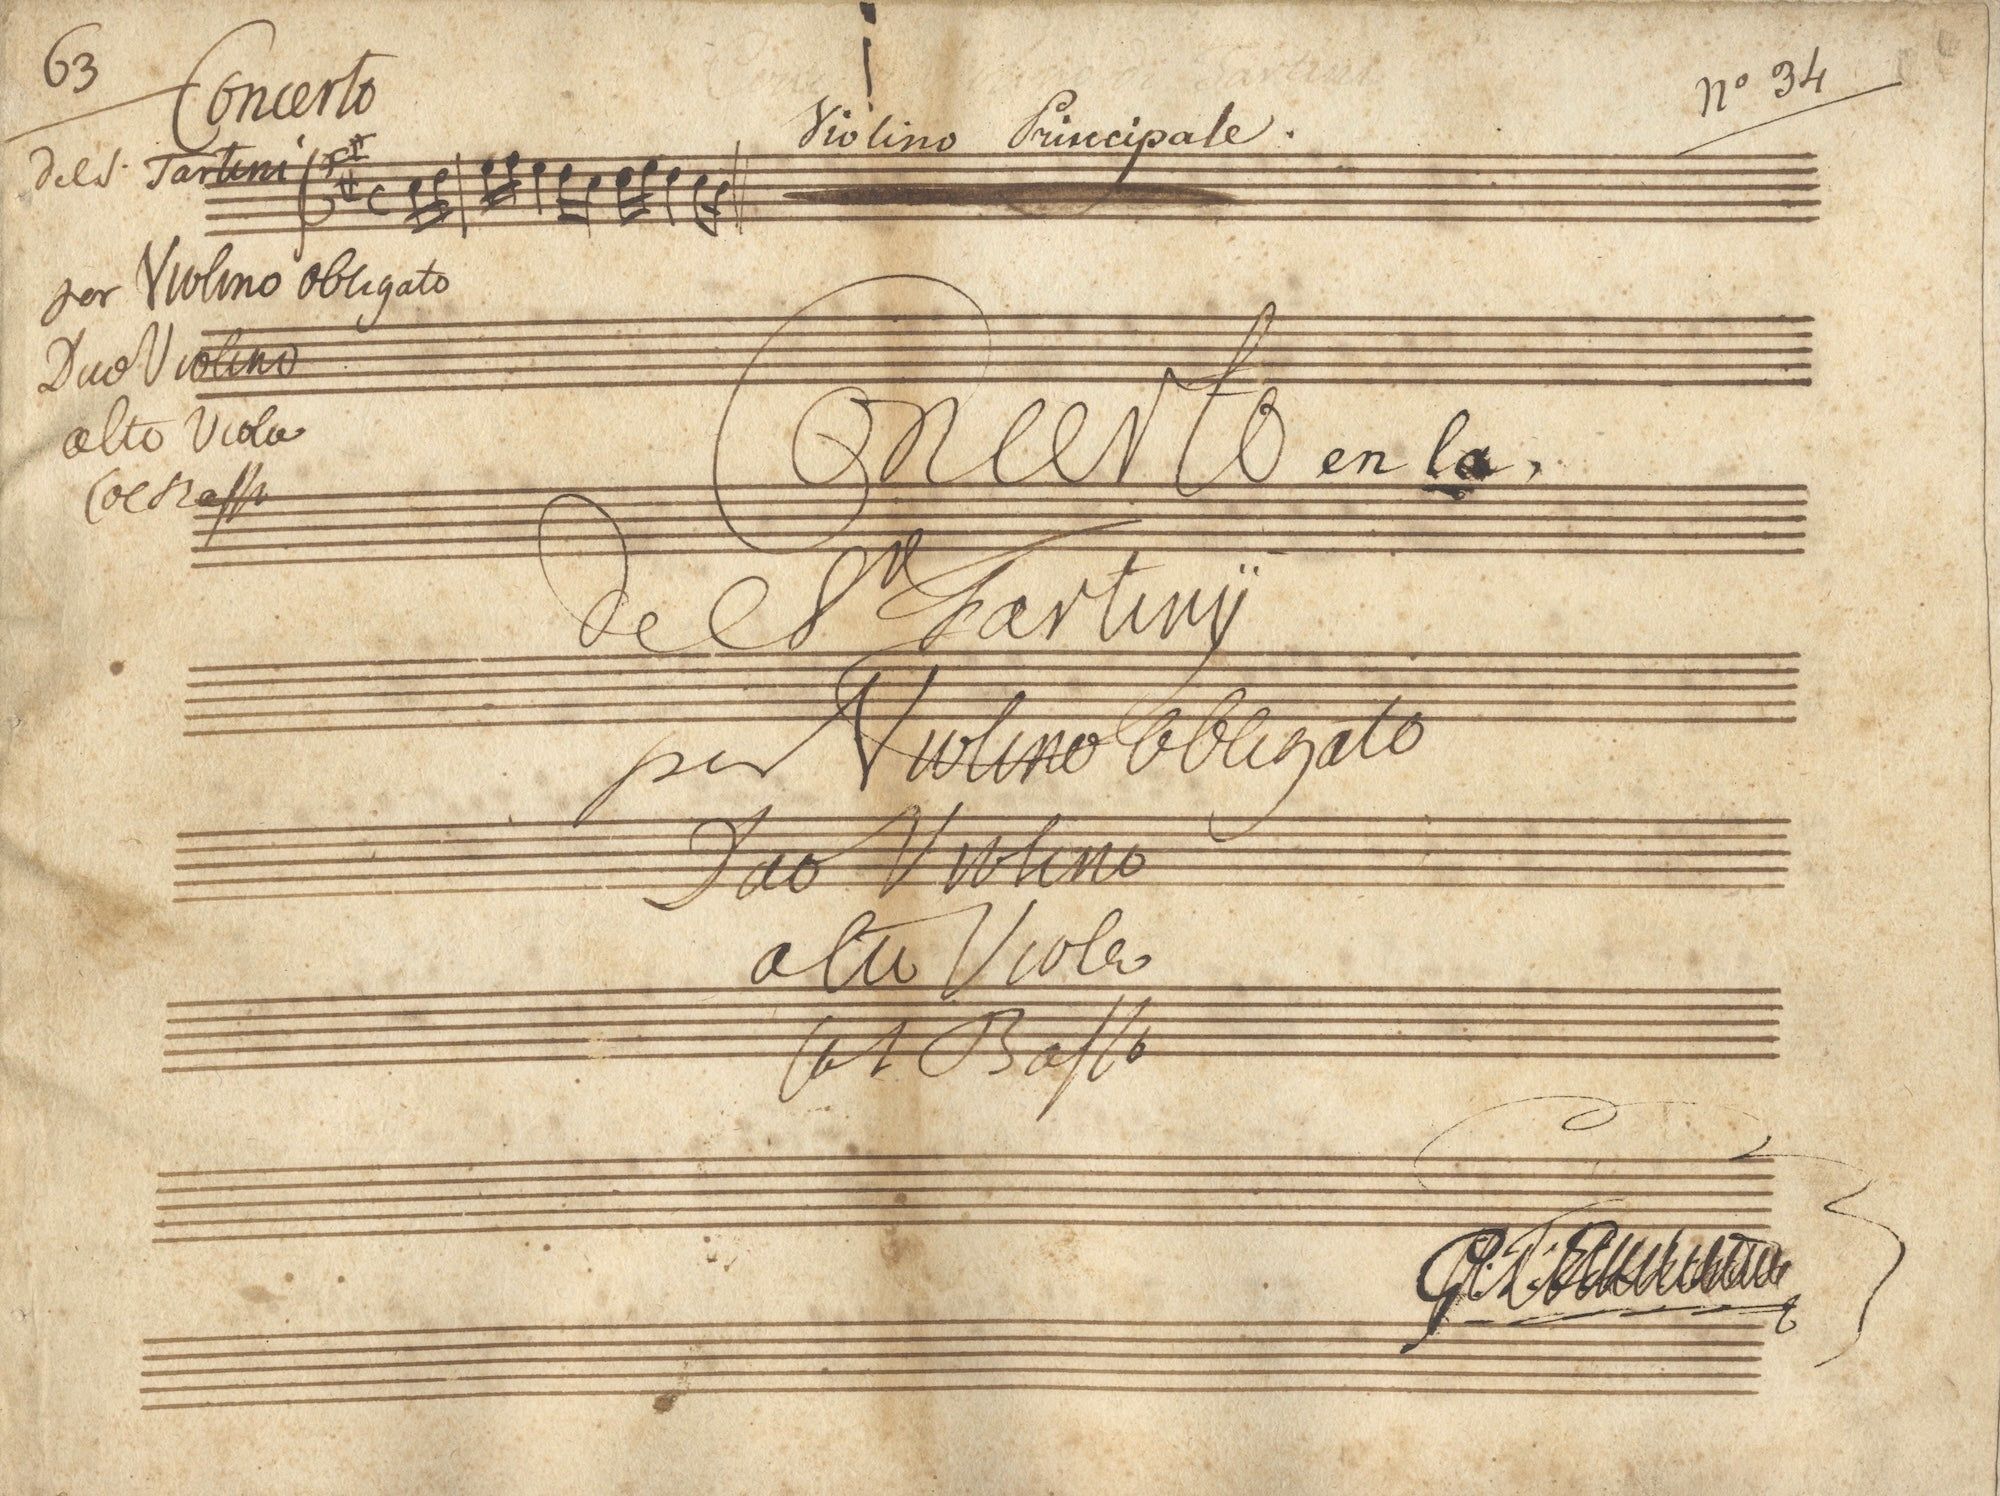 63
Concerto
del S. Tartini
per Violino obligato
Duo Violino
alto Viola
Col Basso
Violino Principale.
No 34
Concerto en la,
del Sr Tartinij
per Violino obbligato
Duo Violino
alto Viola
Col Basso